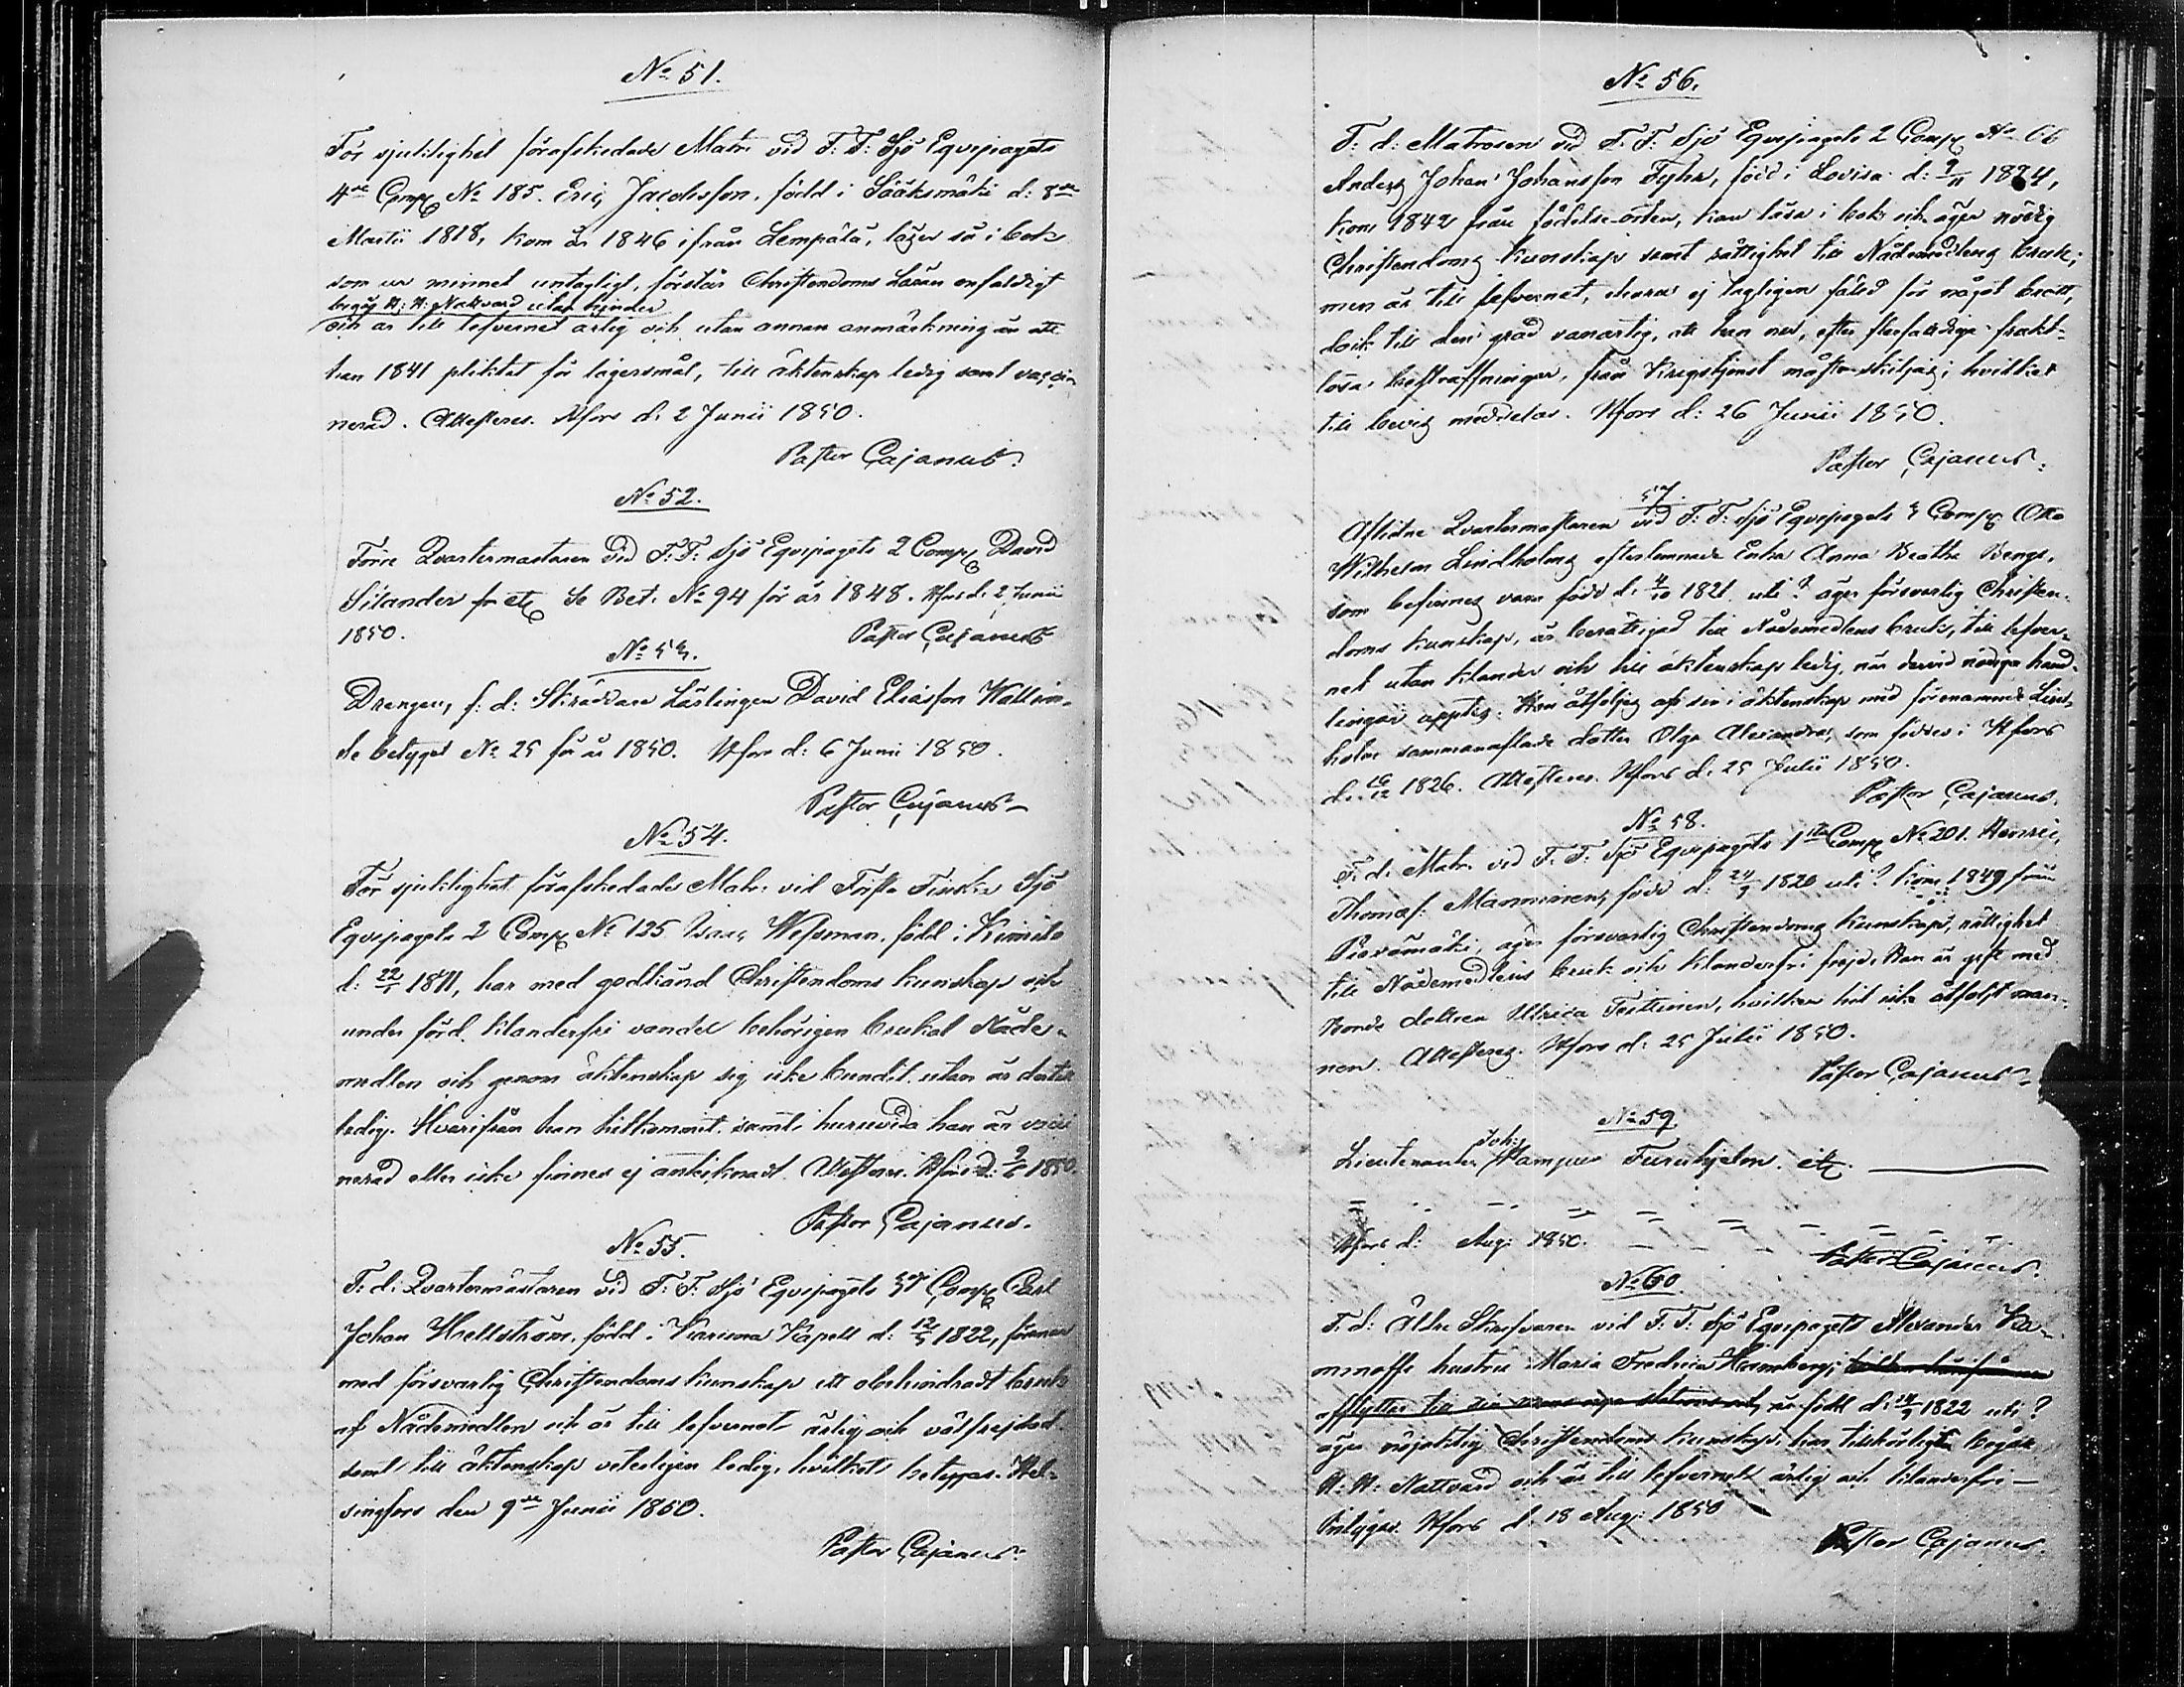 No 51.
För sjuklighet förafskedade Matr. vid F: F: Sjö Eqvipagets
4de Comp No 185. Eric Jacobsson, född i Sääksmäki d: 8de
Martii 1818, kom år 1846 ifrån Lempälä, läser så i bok
som ur minnet antagligt, förstår Christendoms Läran enfaldigt
begår H: H: Nattvard utan hinder
och är till lefvernet ärlig och utan annan anmärkning än att
han 1841 pliktat för lägersmål, till äktenskap ledig samt vacci-
nerad. Attesteras. Hfors d: 2 Junii 1850.
Pastor Cajanus.
No 52.
Förre Qvartermästaren vid F: F: Sjö Eqvipagets 2 Comp David
Silander etc Se Bet. No 94 för år 1848. Hfors d: 2 Junii
1850.
Pastor Cajanus
No 53.
Drengen, f: d: Skräddare Lärlingen David Eliasson Wallin.
Se betyget No 25 för år 1850. Hfors d: 6 Junii 1850.
Pastor Cajanus
No 54.
För sjuklighet förafskedade Matr: vid Första Finska Sjö
Eqvipagets 2 Comp No 125 Isaac Wessman, född i Kimito
d: 22/1 1811, har med godkänd Christendoms kunskap och
under förd klanderfri vandel behörigen brukat Nåde-
medlen och genom äktenskap sig icke bundit utan är dertill
ledig. Hvarifrån han hitkommit samt huruvida han är vacci
nerad eller icke finnes ej antecknadt. Attesteras. Hfors d: 9/6 1850.
Pastor Cajanus.
No 55.
F: d: Qvartermästaren vid F: F: Sjö Eqvipagets 3dje Comp Carl
Johan Hellström, född i Karuna Kapell d: 12/5 1822, förenar
med försvarlig Christendoms kunskap ett obehindradt bruk
af Nådemedlen och är till lefvernet ärlig och välfrejdad
samt till äktenskap veterligen ledig, hvilket betygas. Hel-
singfors den 9de Junii 1850.
Pastor Cajanus
No 56.
F: d: Matrosen vid F: F: Sjö Eqvipagets 2 Comp No 66
Anders Johan Johansson Fyhr, född i Lovisa d: 9/11 1824,
kom 1842 från födelse-orten, kan läsa i bok och äger nödig
Christendoms kunskap samt rättighet till Nådemedlens bruk;
men är till lefvernet, ehuru ej lagligen fälld för något brott,
dock till den grad vanartig, att han nu, efter flerfaldiga frukt-
lösa bestraffningar, från Krigstjenst måst skiljas; hvilket
till bevis meddelas. Hfors d: 26 Junii 1850.
Pastor Cajanus.
57.
Aflidne Qvartermästaren vid F: F: Sjö Eqvipagets 3 Comp Otto
Wilhelm Lindholms efterlemnade Enka Anna Beatha Bengs,
som befinnes vara född d: 4/10 1821 uti? äger försvarlig Christen-
doms kunskap, är berättigad till Nådemedlens bruk, till lefver-
net utan klander och till äktenskap ledig, när dervid nödiga hand-
lingar uppter. Hon åtföljes af sin i äktenskap med förenämnde Lind-
holm sammanaflade dotter Olga Alexandra, som föddes i Hfors
d: 16/12 1826. Attesteras. Hfors d: 25 Julii 1850.
Pastor Cajanus.
No 58.
F: d: Matr. vid F: F: Sjö Eqvipagets 1sta Comp No 201. Henric
Thomas. Manninen, född d: 24/9 1820 uti? kom 1849 från
Piexämäki, äger försvarlig Christendoms kunskap, rättighet
till Nådemedlens bruk och klanderfri frejd. Han är gift med
Bonde dottren Ulrica Teittinen, hvilken hit icke åtföljt man-
nen. Attesteras. Hfors d: 25 Julii 1850.
Pastor Cajanus
No 59.
Joh:
Lieutenanten Hampus Furuhjelm. etc.
Hfors d: Aug: 1850.
Pastor Cajanus.
No 60.
F: d: Äldre Skrifvaren vid F: F: Sjö Eqvipagets Alexander
hustru Maria Fredrica
afflyttar till är född d: 14/9 1822 uti?
äger nöjaktig Christendoms kunskap, har tillbörligt begått
H: H: Nattvard och är till lefvernet ärlig och klanderfri
betygas. Hfors d. 18 Aug: 1850
Pastor Cajanus.